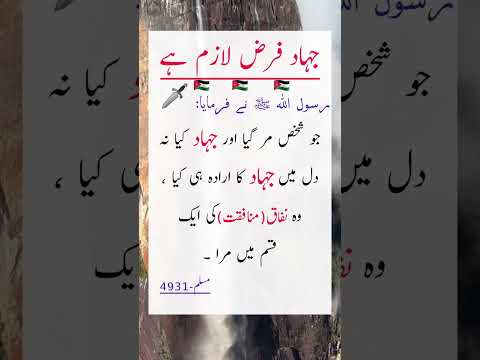 جہاد فرض لازم ہے
رسول اللہ ﷺ نے فرمایا:
جو شخص مر گیا اور جہاد کیا نہ
دل میں جہاد کا ارادہ ہی کیا ،
وہ نفاق(منافقت)کی ایک
قسم میں مرا ۔
مسلم-4931